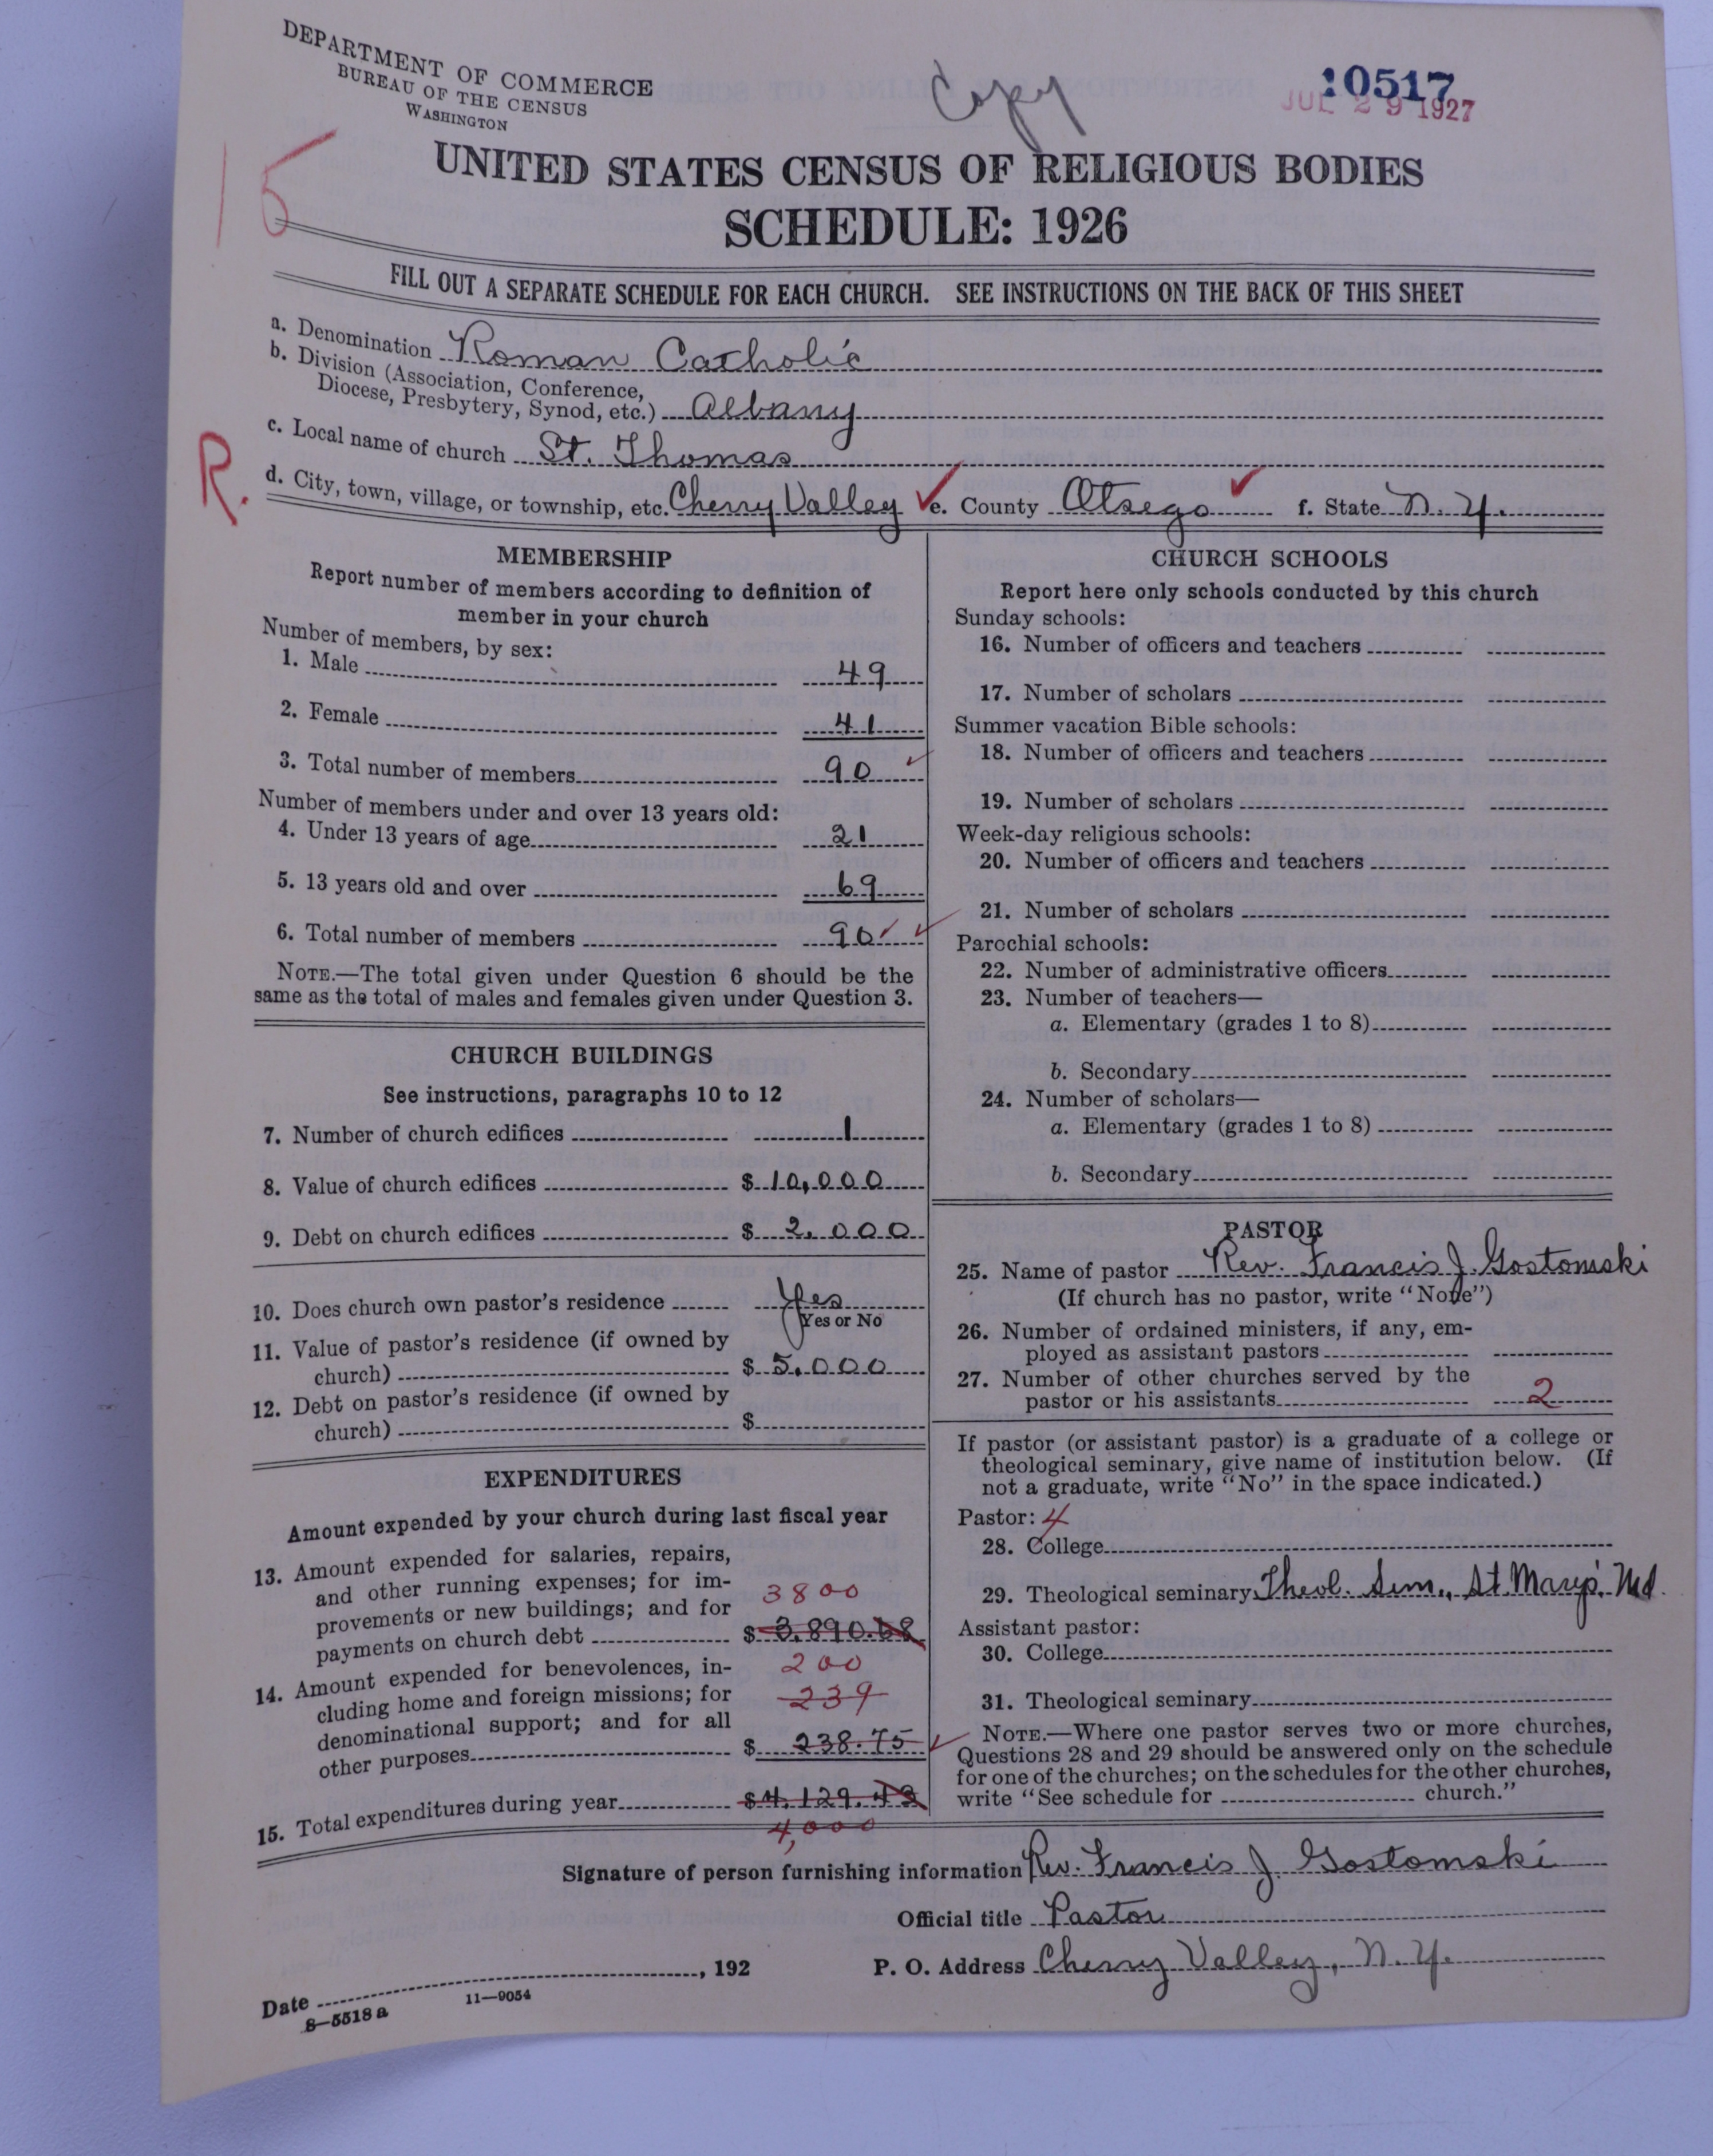 DEPARTMENT OF COMMERCE
BUREAU OF THE CENSUS
WASHINGTON
Copy
10517
JUL 29 1927
15
UNITED STATES CENSUS OF RELIGIOUS BODIES
SCHEDULE: 1926
FILL OUT A SEPARATE SCHEDULE FOR EACH CHURCH. SEE INSTRUCTIONS ON THE BACK OF THIS SHEET
a. Denomination Roman Catholic
b. Division (Association, Conference,
Diocese, Presbytery, Synod, etc.) Albany
c. Local name of church St. Thomas
R.
d. City, town, village, or township, etc. Cherry Valley e. County Otsego f. State N. Y.
MEMBERSHIP
Report number of members according to definition of
member in your church
Number of members, by sex:
1. Male 49
2. Female 41
3. Total number of members 90
Number of members under and over 13 years old:
4. Under 13 years of age 21
5. 13 years old and over 69
6. Total number of members 90
NOTE.—The total given under Question 6 should be the
same as the total of males and females given under Question 3.
CHURCH BUILDINGS
See instructions, paragraphs 10 to 12
7. Number of church edifices 1
8. Value of church edifices $ 10,000
9. Debt on church edifices $ 2,000
10. Does church own pastor's residence Yes
Yes or No
11. Value of pastor's residence (if owned by
church) $ 5,000
12. Debt on pastor's residence (if owned by
church) $
EXPENDITURES
Amount expended by your church during last fiscal year
13. Amount expended for salaries, repairs,
and other running expenses; for im-
provements or new buildings; and for 3800
payments on church debt $ 3,890.68
14. Amount expended for benevolences, in- 200
cluding home and foreign missions; for 239
denominational support; and for all
other purposes $ 238.75
15. Total expenditures during year $4,129.43
4,000
CHURCH SCHOOLS
Report here only schools conducted by this church
Sunday schools:
16. Number of officers and teachers
17. Number of scholars
Summer vacation Bible schools:
18. Number of officers and teachers
19. Number of scholars
Week-day religious schools:
20. Number of officers and teachers
21. Number of scholars
Parochial schools:
22. Number of administrative officers
23. Number of teachers—
a. Elementary (grades 1 to 8)
b. Secondary
24. Number of scholars—
a. Elementary (grades 1 to 8)
b. Secondary
PASTOR
25. Name of pastor Rev. Francis J. Gostomski
(If church has no pastor, write "None")
26. Number of ordained ministers, if any, em-
ployed as assistant pastors
27. Number of other churches served by the
pastor or his assistants 2
If pastor (or assistant pastor) is a graduate of a college or
theological seminary, give name of institution below. (If
not a graduate, write "No" in the space indicated.)
Pastor: 4
28. College
29. Theological seminary Theol. Sem., St. Mary's, Md.
Assistant pastor:
30. College
31. Theological seminary
NOTE.—Where one pastor serves two or more churches,
Questions 28 and 29 should be answered only on the schedule
for one of the churches; on the schedules for the other churches,
write "See schedule for church."
Signature of person furnishing information Rev. Francis J. Gostomski
Official title Pastor
Date , 192 P. O. Address Cherry Valley, N. Y.
8—5518 a 11—9054